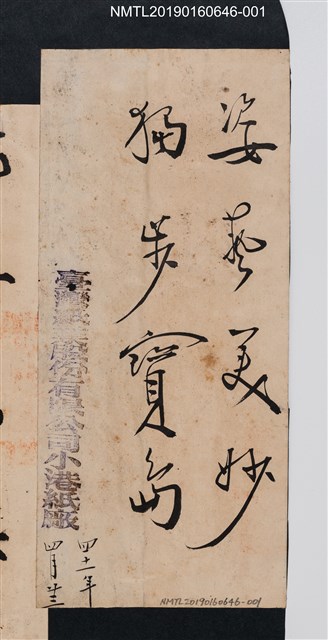 NMTL20190160646-001
姿藝美妙
獨步寶島
臺灣紙業股份有限公司小港紙廠
四十一年
四月廿三
NMTL20190160646-001